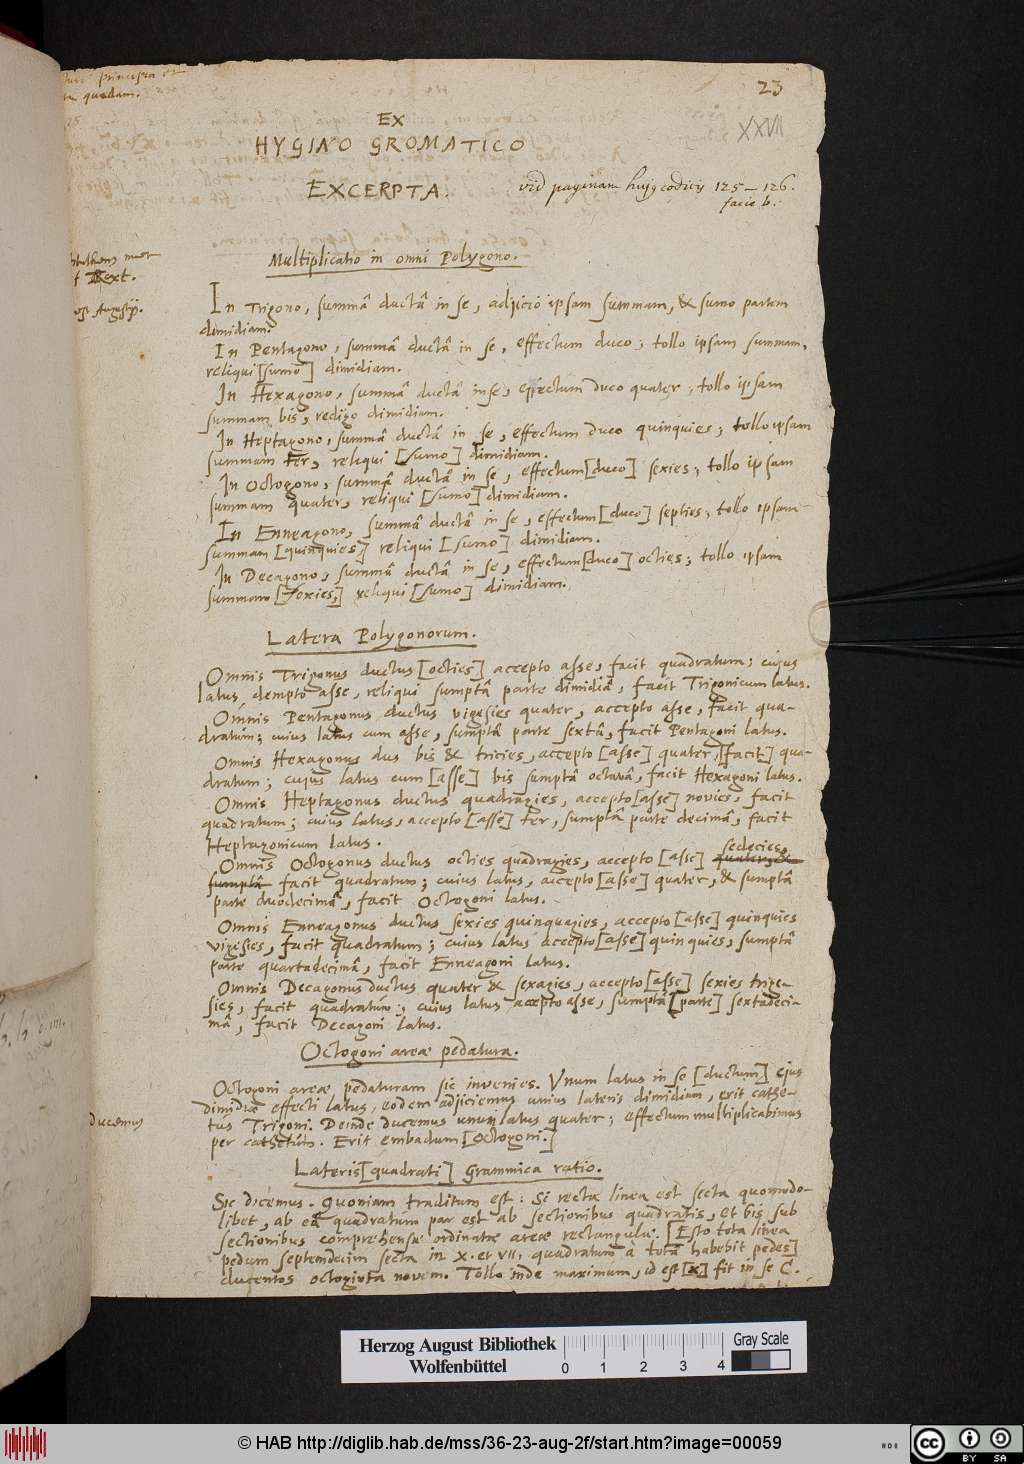 principia et
quædam.
23
XXVII
EX
HYGINO GROMATICO
EXCERPTA.
vid paginam hujꝯ codicis 125–126.
facie b.
Text.
Augustj.
Multiplicatio in omni Polygono.
In Trigono, summâ ductâ in se, adjicio ipsam summam, & sumo partem
dimidiam.
In Pentagono, summâ ductâ in se, effectum duco; tollo ipsam summam,
reliqui [sumo] dimidiam.
In Hexagono, summâ ductâ in se, effectum duco quater; tollo ipsam
summam bis, redigo dimidiam.
In Heptagono, summâ ductâ in se, effectum duco quinquies; tollo ipsam
summam ter, reliqui [sumo] dimidiam.
In Octogono, summâ ductâ in se, effectum [duco] sexies; tollo ipsam
summam quater, reliqui [sumo] dimidiam.
In Enneagono, summâ ductâ in se, effectum [duco] septies; tollo ipsam
summam [quinquies] reliqui [sumo] dimidiam.
In Decagono, summâ ductâ in se, effectum [duco] octies; tollo ipsam
summam [sexies,] reliqui [sumo] dimidiam.
Latera Polygonorum.
Omnis Trigonus ductus [octies] accepto asse, facit quadratum; cujus
latus, dempto asse, reliqui sumptâ parte dimidiâ, facit Trigonicum latus.
Omnis Pentagonus ductus vigesies quater, accepto asse, facit qua-
dratum; cuius latus cum asse, sumptâ parte sextâ, facit Pentagoni latus.
Omnis Hexagonus dus bis & tricies, accepto [asse] quater, [facit] qua-
dratum; cujus latus cum [asse] bis sumptâ octavâ, facit Hexagoni latus.
Omnis Heptagonus ductus quadragies, accepto [asse] novies, facit
quadratum; cuius latus, accepto [asse] ter, sumptâ parte decimâ, facit
Heptagonicum latus.
Omnis Octogonus ductus octies quadragies, accepto [asse] sedecies, quater, &
sumptâ facit quadratum; cuius latus, accepto [asse] quater, & sumptâ
parte duodecimâ, facit Octogoni latus.
Omnis Enneagonus ductus sexies quinquagies, accepto [asse] quinquies
vigesies, facit quadratum; cuius latus accepto [asse] quinquies, sumptâ
parte quartadecimâ, facit Enneagoni latus.
Omnis Decagonus ductus quater & sexagies, accepto [asse] sexies trige-
sies, facit quadratum; cuius latus accepto asse, sumptâ [parte] sextadeci-
mâ, facit Decagoni latus.
Octogoni areæ pedatura.
Octogoni areæ pedaturam sic invenies. Vnum latus in se [ductum] ejus
dimidiæ effecti latus, eodem adjiciemus unius lateris dimidium, erit cathe-
tus Trigoni. Deinde ducemus unum latus quater; effectum multiplicabimus
ducemus
per cathetum. Erit embadum [Octogoni.]
Lateris [quadrati] Grammica ratio.
Sic dicemus. Quoniam traditum est: Si recta linea est secta quomodo-
libet, ab eâ quadratum par est ab sectionibus quadratis, et bis sub
sectionibus comprehensæ ordinatæ areæ rectangulæ. [Esto tota linea
pedum septemdecim secta in X. et VII. quadratum à totâ habebit pedes]
ducentos octoginta novem. Tollo inde maximum, id est [X] fit in se C.
Herzog August Bibliothek
Wolfenbüttel
0 1 2 3 4
Gray Scale
© HAB http://diglib.hab.de/mss/36-23-aug-2f/start.htm?image=00059
cc BY SA